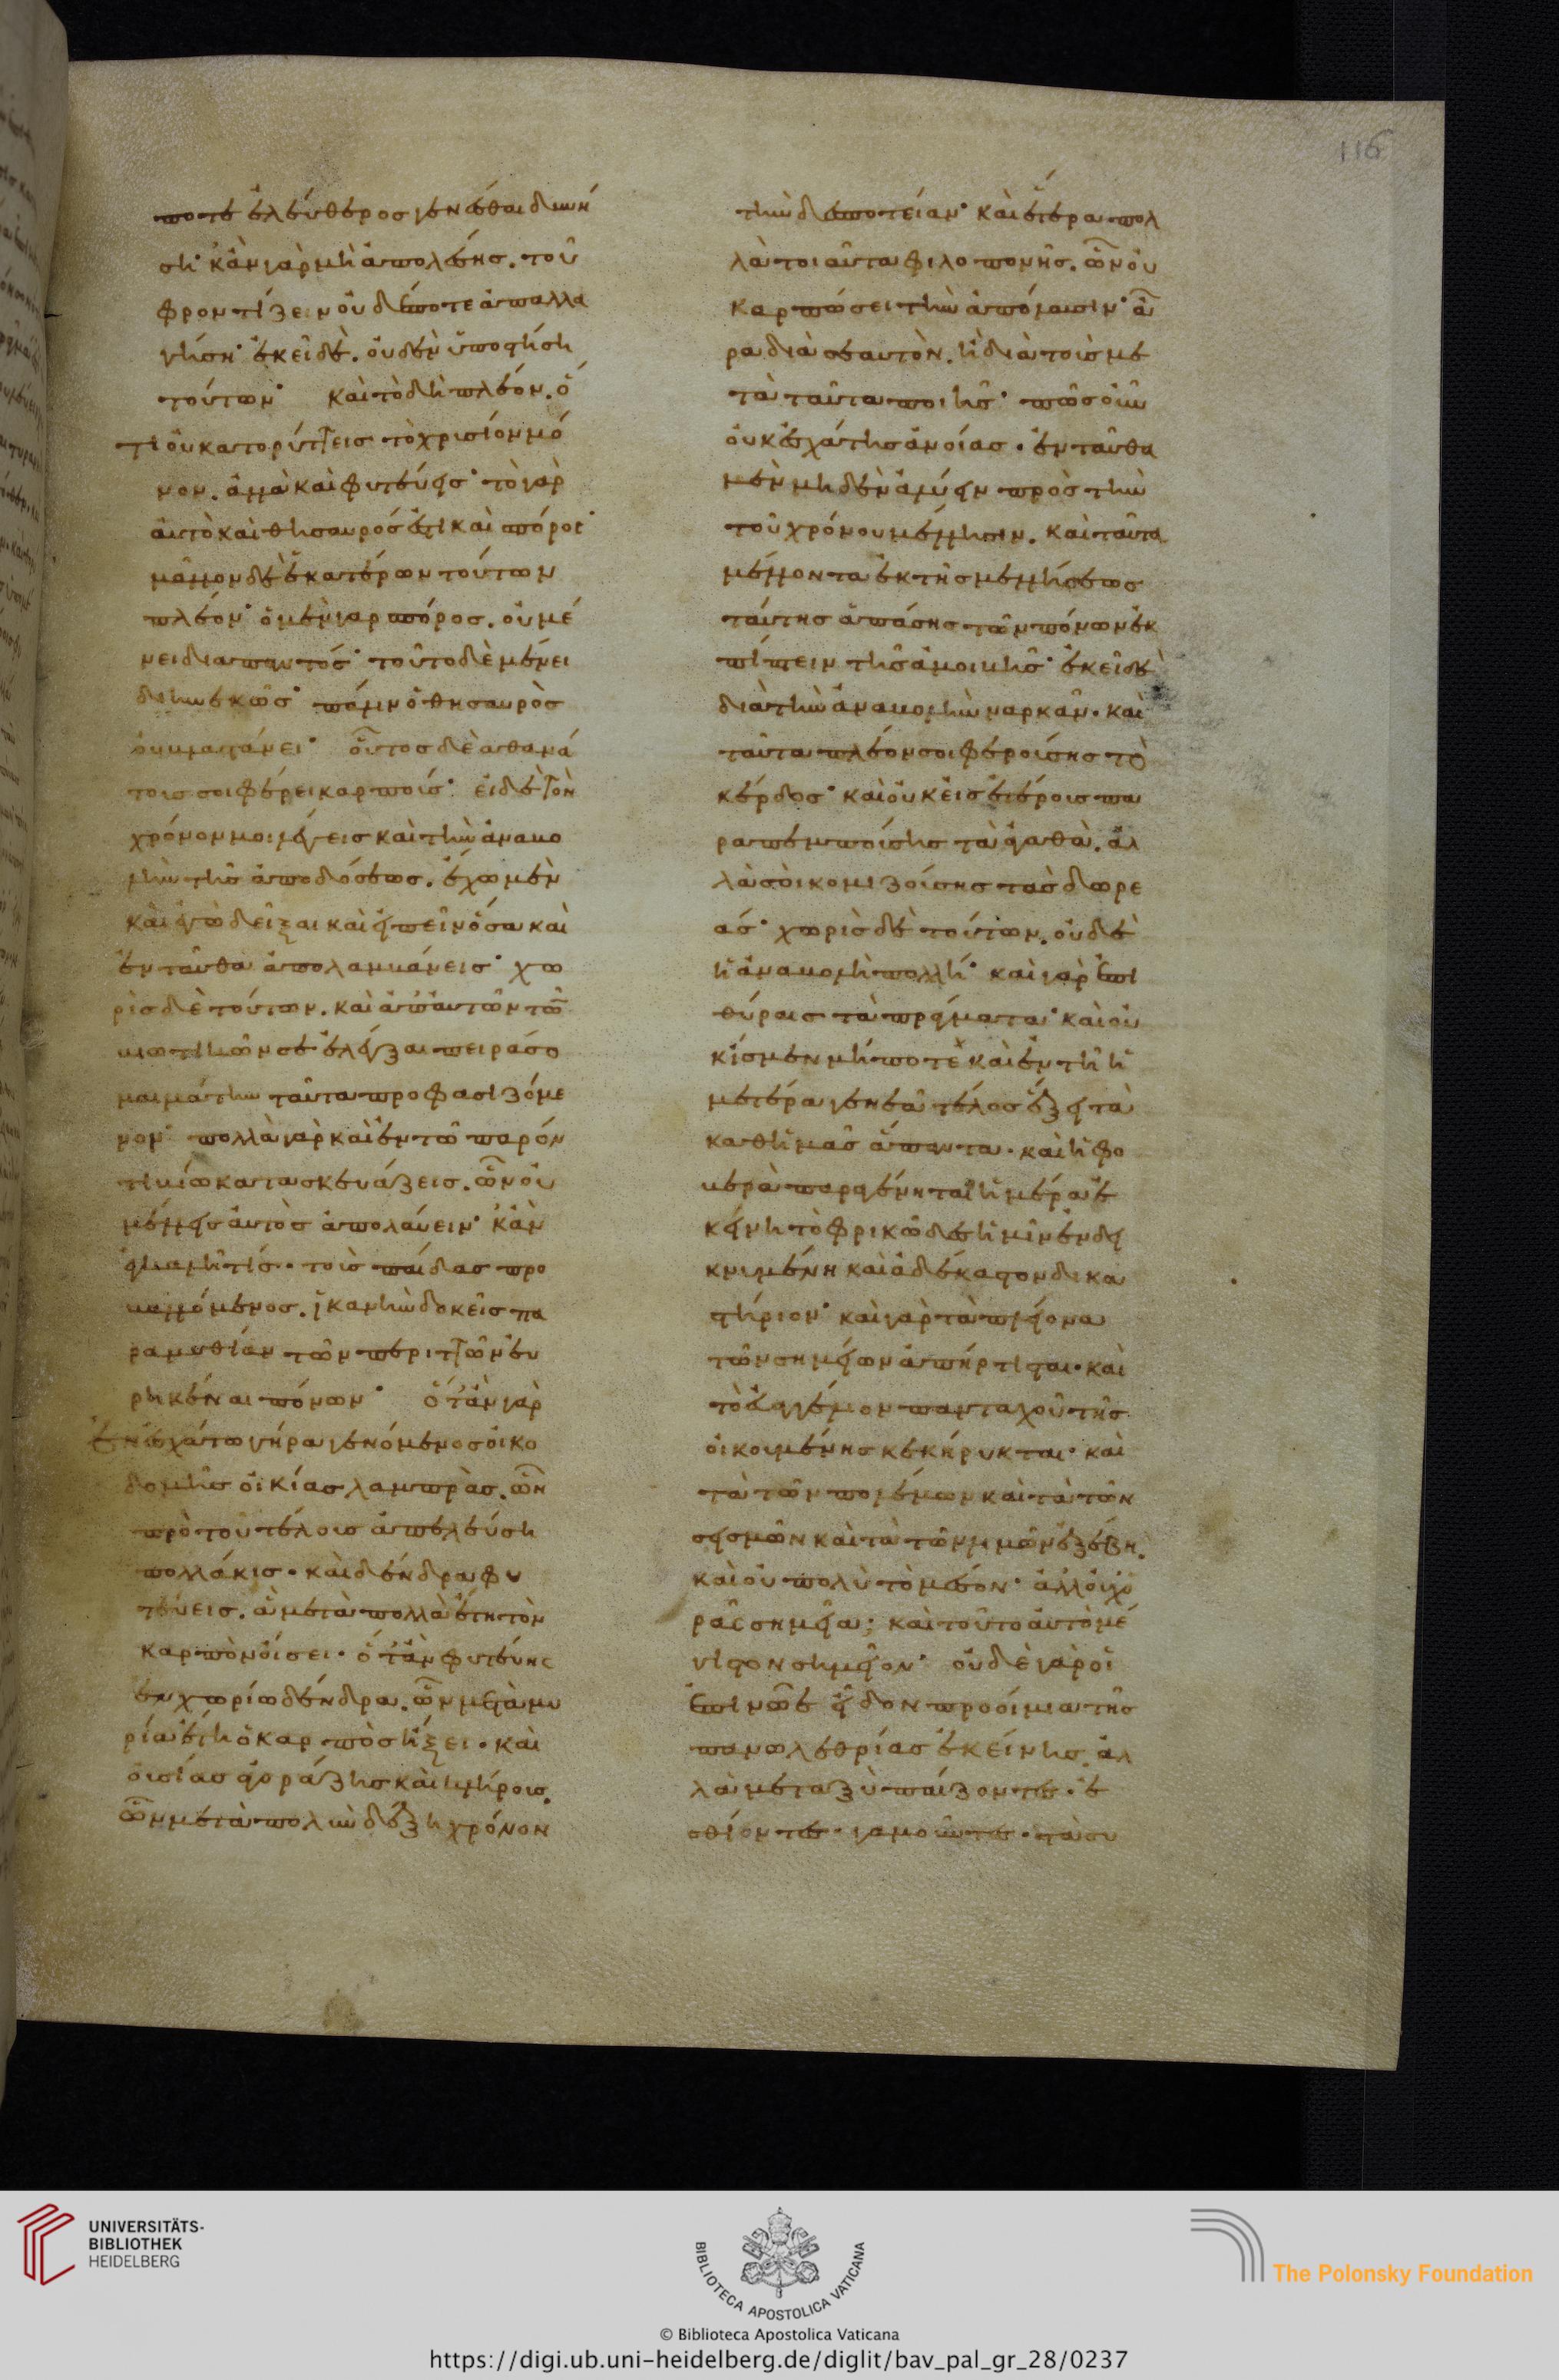 ποτὲ ἐλεύθερος γενέσθαι δυνή
ση· κἂν γὰρ μὴ ἀπολέσης. τοῦ
φροντίζειν οὐδέποτε ἀπαλλα
γήση· ἐκεῖ δὲ. οὐδὲν ὑποστήση
τούτων· καὶ τὸ δὴ πλέον. ὅ
τι οὐ κατορύττεις τὸ χρυσίον μό
νον. ἀλλὰ καὶ φυτεύεις· τὸ γὰρ
αὐτὸ καὶ θησαυρός ἐστι καὶ σπόρος·
μᾶλλον δὲ ἑκατέρων τούτων
πλέον· ὁ μὲν γὰρ σπόρος. οὐ μέ
νει διαπαντός· τοῦτο δὲ μένει
διηνεκῶς· πάλιν ὁ θησαυρὸς
οὐ βλαστάνει· οὗτος δὲ ἀθανά
τους σοι φέρει καρπούς· εἰ δὲ τὸν
χρόνον μοι λέγεις καὶ τὴν ἀναβο
λὴν τῆς ἀποδόσεως. ἔχω μὲν
καὶ ἐγὼ δεῖξαι καὶ εἰπεῖν ὅσα καὶ
ἐνταῦθα ἀπολαμβάνεις· χω
ρὶς δὲ τούτων. καὶ ἀπ' αὐτῶν τῶν
βιωτικῶν σὲ ἐλέγξαι πειράσο
μαι μάτην ταῦτα προφασιζόμε
νον· πολλὰ γὰρ καὶ ἐν τῶ παρόν
τι βίω κατασκευάζεις. ὧν οὐ
μέλλεις αὐτὸς ἀπολαύειν· κἂν
ἐγκαλῆ τίς. τοὺς παῖδας προ
βαλλόμενος. ἱκανὴν δοκεῖς πα
ραμυθίαν τῶν περιττῶν εὑ
ρηκέναι πόνων· ὅταν γὰρ
ἐν ἐσχάτω γήρα γενόμενος οἰκο
δομῆς οἰκίας λαμπρὰς. ὧν
πρὸ τοῦ τέλους ἀπελεύση
πολλάκις. καὶ δένδρα φυ
τεύεις. ἃ μετὰ πολλὰ ἔτη τὸν
καρπὸν οἴσει. ὅταν φυτεύης
ἐν χωρίω δένδρα. ὧν μετὰ μυ
ρία ἔτη ὁ καρπὸς ἥξει. καὶ
οὐσίας ἀγοράζης καὶ κλήρους.
ὧν μετὰ πολὺν δέξη χρόνον
τὴν δεσποτείαν· καὶ ἕτερα πολ
λὰ τοιαῦτα φιλοπονῆς. ὧν οὐ
καρπώσει τὴν ἀπόλαυσιν· ἆ
ρα διὰ σεαυτὸν. ἢ διὰ τοὺς με
τὰ ταῦτα ποιῆς· πῶς οὖν
οὐκ ἐσχάτης ἀνοίας. ἐνταῦθα
μὲν μηδὲν ἀλύειν πρὸς τὴν
τοῦ χρόνου μέλλησιν. καὶ ταῦτα
μέλλοντα ἐκ τῆς μελλήσεως
ταύτης ἁπάσης τῶν πόνων ἐκ
πίπτειν τῆς ἀμοιβῆς· ἐκεῖ δὲ
διὰ τὴν ἀναβολὴν ναρκᾶν. καὶ
ταῦτα πλέον σοι φερούσης τὸ
κέρδος· καὶ οὐκ εἰς ἑτέρους πα
ραπεμπούσης τὰ ἀγαθὰ. ἀλ
λὰ σοὶ κομιζούσης τὰς δωρε
άς· χωρὶς δὲ τούτων. οὐδὲ
ἡ ἀναβολὴ πολλή· καὶ γὰρ ἐπὶ
θύραις τὰ πράγματα· καὶ οὐ
κ ἴσμεν μήποτε καὶ ἐν τῆ ἡ
μετέρα γενεᾶ τέλος ἕξει τὰ
καθ' ἡμᾶς ἅπαντα. καὶ ἡ φο
βερὰ παραγένηται ἡμέρα ἐ
κείνη τὸ φρικῶδες ἡμῖν ἐνδει
κνυμένη καὶ ἀδέκαστον δικα
στήριον· καὶ γὰρ τὰ πλείονα
τῶν σημείων ἀπήρτισται. καὶ
τὸ εὐαγγέλιον πανταχοῦ τῆς
οἰκουμένης κεκήρυκται. καὶ
τὰ τῶν πολέμων καὶ τὰ τῶν
σεισμῶν καὶ τὰ τῶν λιμῶν ἐξέβη.
καὶ οὐ πολὺ τὸ μέσον· ἀλλ' οὐχ ὁ
ρᾶς σημεῖα; καὶ τοῦτο αὐτὸ μέ
γιστον σημεῖον· οὐδὲ γὰρ οἱ
ἐπὶ νῶε εἶδον προοίμια τῆς
πανωλεθρίας ἐκείνης. ἀλ
λὰ μεταξὺ παίζοντες. ἐ
σθίοντες. γαμοῦντες. τὰ συ
116
UNIVERSITÄTS-
BIBLIOTHEK
HEIDELBERG
BIBLIOTECA APOSTOLICA VATICANA
The Polonsky Foundation
© Biblioteca Apostolica Vaticana
https://digi.ub.uni-heidelberg.de/diglit/bav_pal_gr_28/0237